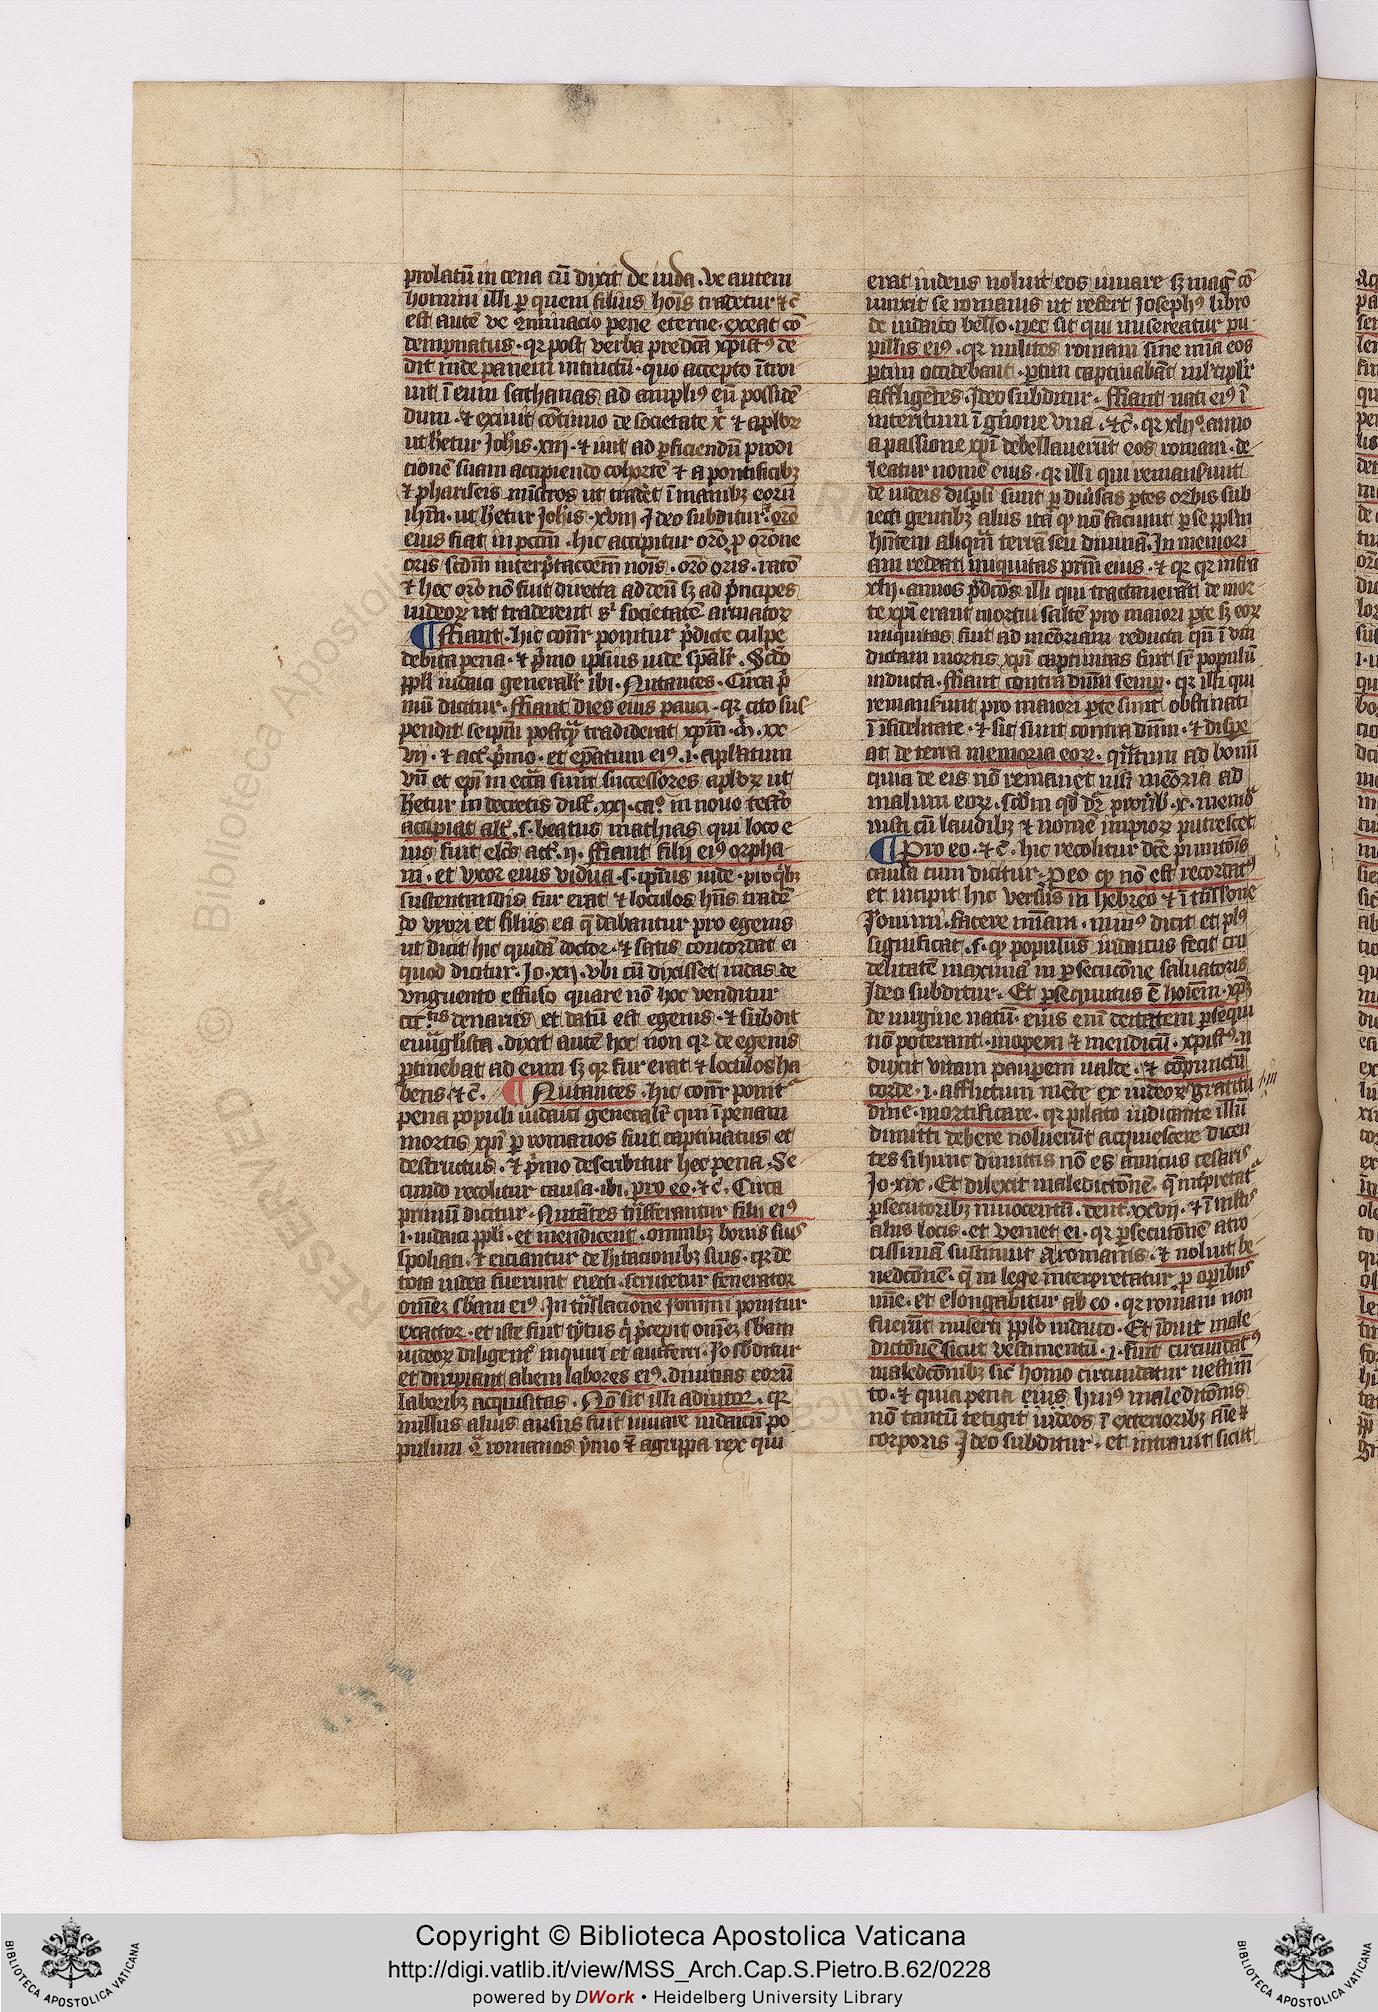 prolatũ in cena cũ dixit de iuda · ve autem
homini illi ꝑ quem filius hoı̅s tradetur ⁊ c̅
est autẽ ve ꝯminacio pene eterne · exeat cõ
dempnatus · qꝛ post verba predicta xp̅ists de
dit iude panem intinctũ · quo accepto ĩtroi
uit ĩ eum sathanas ad ampliꝰ eũ possidẽ
dum · ⁊ exiuit cõtinuo de societate x̅ ⁊ aplõꝝ
ut hẽtur Joh̅is · xiii · ⁊ iuit ad ꝑficiendũ prodi
tionẽ suam accipiendo cohortẽ ⁊ a pontificibꝫ
⁊ phariseis mĩstros ut tradẽt ĩ manibꝫ eorũ
ih̅m · ut hẽtur Joh̅is · xviii · Ideo subditur · orõ
eius fiat in pctm̅ · hic accipitur orõ ꝑ orõne
oris scdm̅ interp̅tacõem nois̅ · orõ oris · ratõ
⁊ hec orõ nõ fuit directa ad deũ sꝫ ad p̅ncipes
iudeoꝝ ut traderent sͥ societatẽ armatoꝝ
¶ ffiant · hic con̅r ponitur p̅dicte culpe
debita pena · ⁊ p̅mo ipsius iude sp̅alr̅ · Scd̅o
ppl̅i iudaici generalr̅ ibi · Nutantes · Circa p̅
mũ dicitur · ffiant dies eius pauci · qꝛ cito sus
pendit seip̅m postꝙ tradiderat xp̅m · M̅ · xx
vij · ⁊ act̅ · p̅mo · et ep̅atum eiꝰ · i · ap̅latum
vn̅ et ep̅i in ecc̅a sunt successores ap̅loꝝ ut
hẽtur in decretis dist̅ · xxi · caº · in nouo test̅o
accipiat alt̅ · s · beatus mathias qui loco e
ius fuit el̅cs act̅ · ij · ffiant filij eiꝰ orpha
ni · et vxor eius vidua · s · ip̅ius iude · pro qͥbꝫ
sustentandis fur erat ⁊ loculos hñs tradẽ
do vxori et filiis ea q̅ dabantur pro egenis
ut dicit hic quidã doctor · ⁊ satis concordat ei
quod dicitur · Jo · xij · vbi cũ dixisset iudas de
vnguento effuso quare nõ hoc venditur
ccc̅tis denariis et datũ est egenis · ⁊ subdit
euãglista · dixit autẽ hoc non qꝛ de egenis
ꝑtinebat ad eum sꝫ qꝛ fur erat ⁊ loculos ha
bens · ⁊ c̅ · ¶ Nutantes · hic con̅r ponit̅
pena populi iudaici generalr̅ qui ĩ penam
mortis xp̅i ꝑ romanos fuit captiuatus et
destructus · ⁊ p̅mo describitur hec pena · Se
cundo recolitur causa · ibi · pro eo · ⁊ c̅ · Circa
primũ dicitur · Nutãtes trãsferantur filij eiꝰ
i · iudaici ppl̅i · et mendicent · omnibꝫ bonis suis
spoliati · ⁊ eiciantur de hĩtacionibꝫ suis · qꝛ de
tota iudea fuerunt eiecti · scrutetur fenerator
om̅eꝫ sb̅am eiꝰ · In trãslacione Jeromi̅ ponitur
exactor · et iste fuit tytus qͥ p̅cepit om̅eꝫ sb̅am
iudeoꝝ diligent̅ inquiri et aufferri · Jo sb̅ditur
et diripiant alieni labores eiꝰ · diuitias eorũ
laboribꝫ acquisitas · Nõ sit illi adiutor · qꝛ
nullus alius ausus fuit iuuare iudaicũ po
pulum ꝯ romanos ymo ⁊ agrippa rex qui
erat iudeus noluit eos iuuare sꝫ mag̅ cõ
iunxit se romanis ut refert Josephꝰ libro
de iudaico bello · nec sit qui misereatur pu
pillis eiꝰ · qꝛ milites romani sine mĩa eos
ꝑtim occidebant · ꝑtim captiuabãt ml̅tiplr̅
affligẽtes · Ideo subditur · ffiant nati eiꝰ ĩ
interitum ĩ gñone vna · ⁊c̅ · qꝛ xlijº · anno
a passione xp̅i debellauerũt eos romani · de
leatur nomẽ eius · qꝛ illi qui remanserunt
de iudeis disp̅si sunt ꝑ diũsas ꝑtes orbis sub
iecti gentibꝫ aliis ita ꝙ nõ faciunt ꝑ se pp̅lm̅
hñtem aliquã terrã seu diuinã · In memori
am redeat iniquitas prm̅ eius · ⁊ qꝛ qꝛ infra
xlij · annos p̅dc̅os illi qui tractauerãt de mor
te xp̅i erant mortui saltẽ pro maiori ꝑte sꝫ eoꝝ
iniquitas fuit ad memoriam reducta qñ ĩ vin
dictam mortis xp̅i captiuitas fuit sr̅ populũ
inducta · ffiant contra dn̅m semꝑ · qꝛ illi qui
remanserunt pro maiori ꝑte sunt obstinati
ĩ ĩfidelitate · ⁊ sic sunt contra dn̅m · ⁊ disꝑe
at de terra memoria eoꝝ · qñtum ad bonũ
quia de eis nõ remanet nisi mẽoria ad
malum eoꝝ · scd̅m qd̅ dr̅ prou̅b · x · memͣ
iusti cũ laudibꝫ ⁊ nomẽ impioꝝ putrescet
¶ Pro eo · ⁊ c̅ · hic recolitur dc̅e punitõis
causa cum dicitur · Peo ꝙ nõ est recordatꝰ
et incipit hic versus in hebreo ⁊ ĩ trãslone
Jeronimi · facere mĩam · minꝰ dicit et plꝰ
significat · s · ꝙ populus iudaicus fecit cru
delitatẽ maximã in ꝑsecucõne saluatoris
Ideo subditur · Et ꝑsequutus ẽ hoı̅em · xp̅m
de uirgine natũ · eius enĩ deitatem ꝑsequi
nõ poterant · inopem ⁊ mendicũ · xp̅istꝰ · n̅
duxit vitam pauꝑem ualde · ⁊ cõpunctũ
corde · i · afflictum mẽte ex iudeoꝝ gratitu
dine · mortificare · qꝛ pilato iudicante illũ
dimitti debere noluerũt acquiescere dicen
tes si hunc dimittis nõ es amicus cesaris
Jo · xix · Et dilexit maledictionẽ · q̅ int̅pretat̅
ꝑsecutoribꝫ innocentũ · deut · xxvij · ⁊ ĩ ml̅tis
aliis locis · et veniet ei · qꝛ ꝑsecutõnẽ atro
cissimã sustinuit a romanis · ⁊ noluit be
nedictõnẽ · q̅ in lege interpretatur ꝑ oꝑibus
mĩe · et elongabitur ab eo · qꝛ romani non
fuerũt miserti pp̅lo iudaico · Et ĩduit male
dictõnẽ sicut vestimentũ · i · fuit circũdatꝰ
maledc̅onibꝫ sic̅ homo circũdatur uestim̅
to · ⁊ quia pena eius huiꝰ maleditõnis
nõ tantũ tetigit iudeos ĩ exterioribꝫ aĩe ⁊
corporis Ideo subditur · et intrauit sicut
Copyright © Biblioteca Apostolica Vaticana
http://digi.vatlib.it/view/MSS_Arch.Cap.S.Pietro.B.62/0228
powered by DWork • Heidelberg University Library
BIBLIOTECA APOSTOLICA VATICANA
BIBLIOTECA APOSTOLICA VATICANA